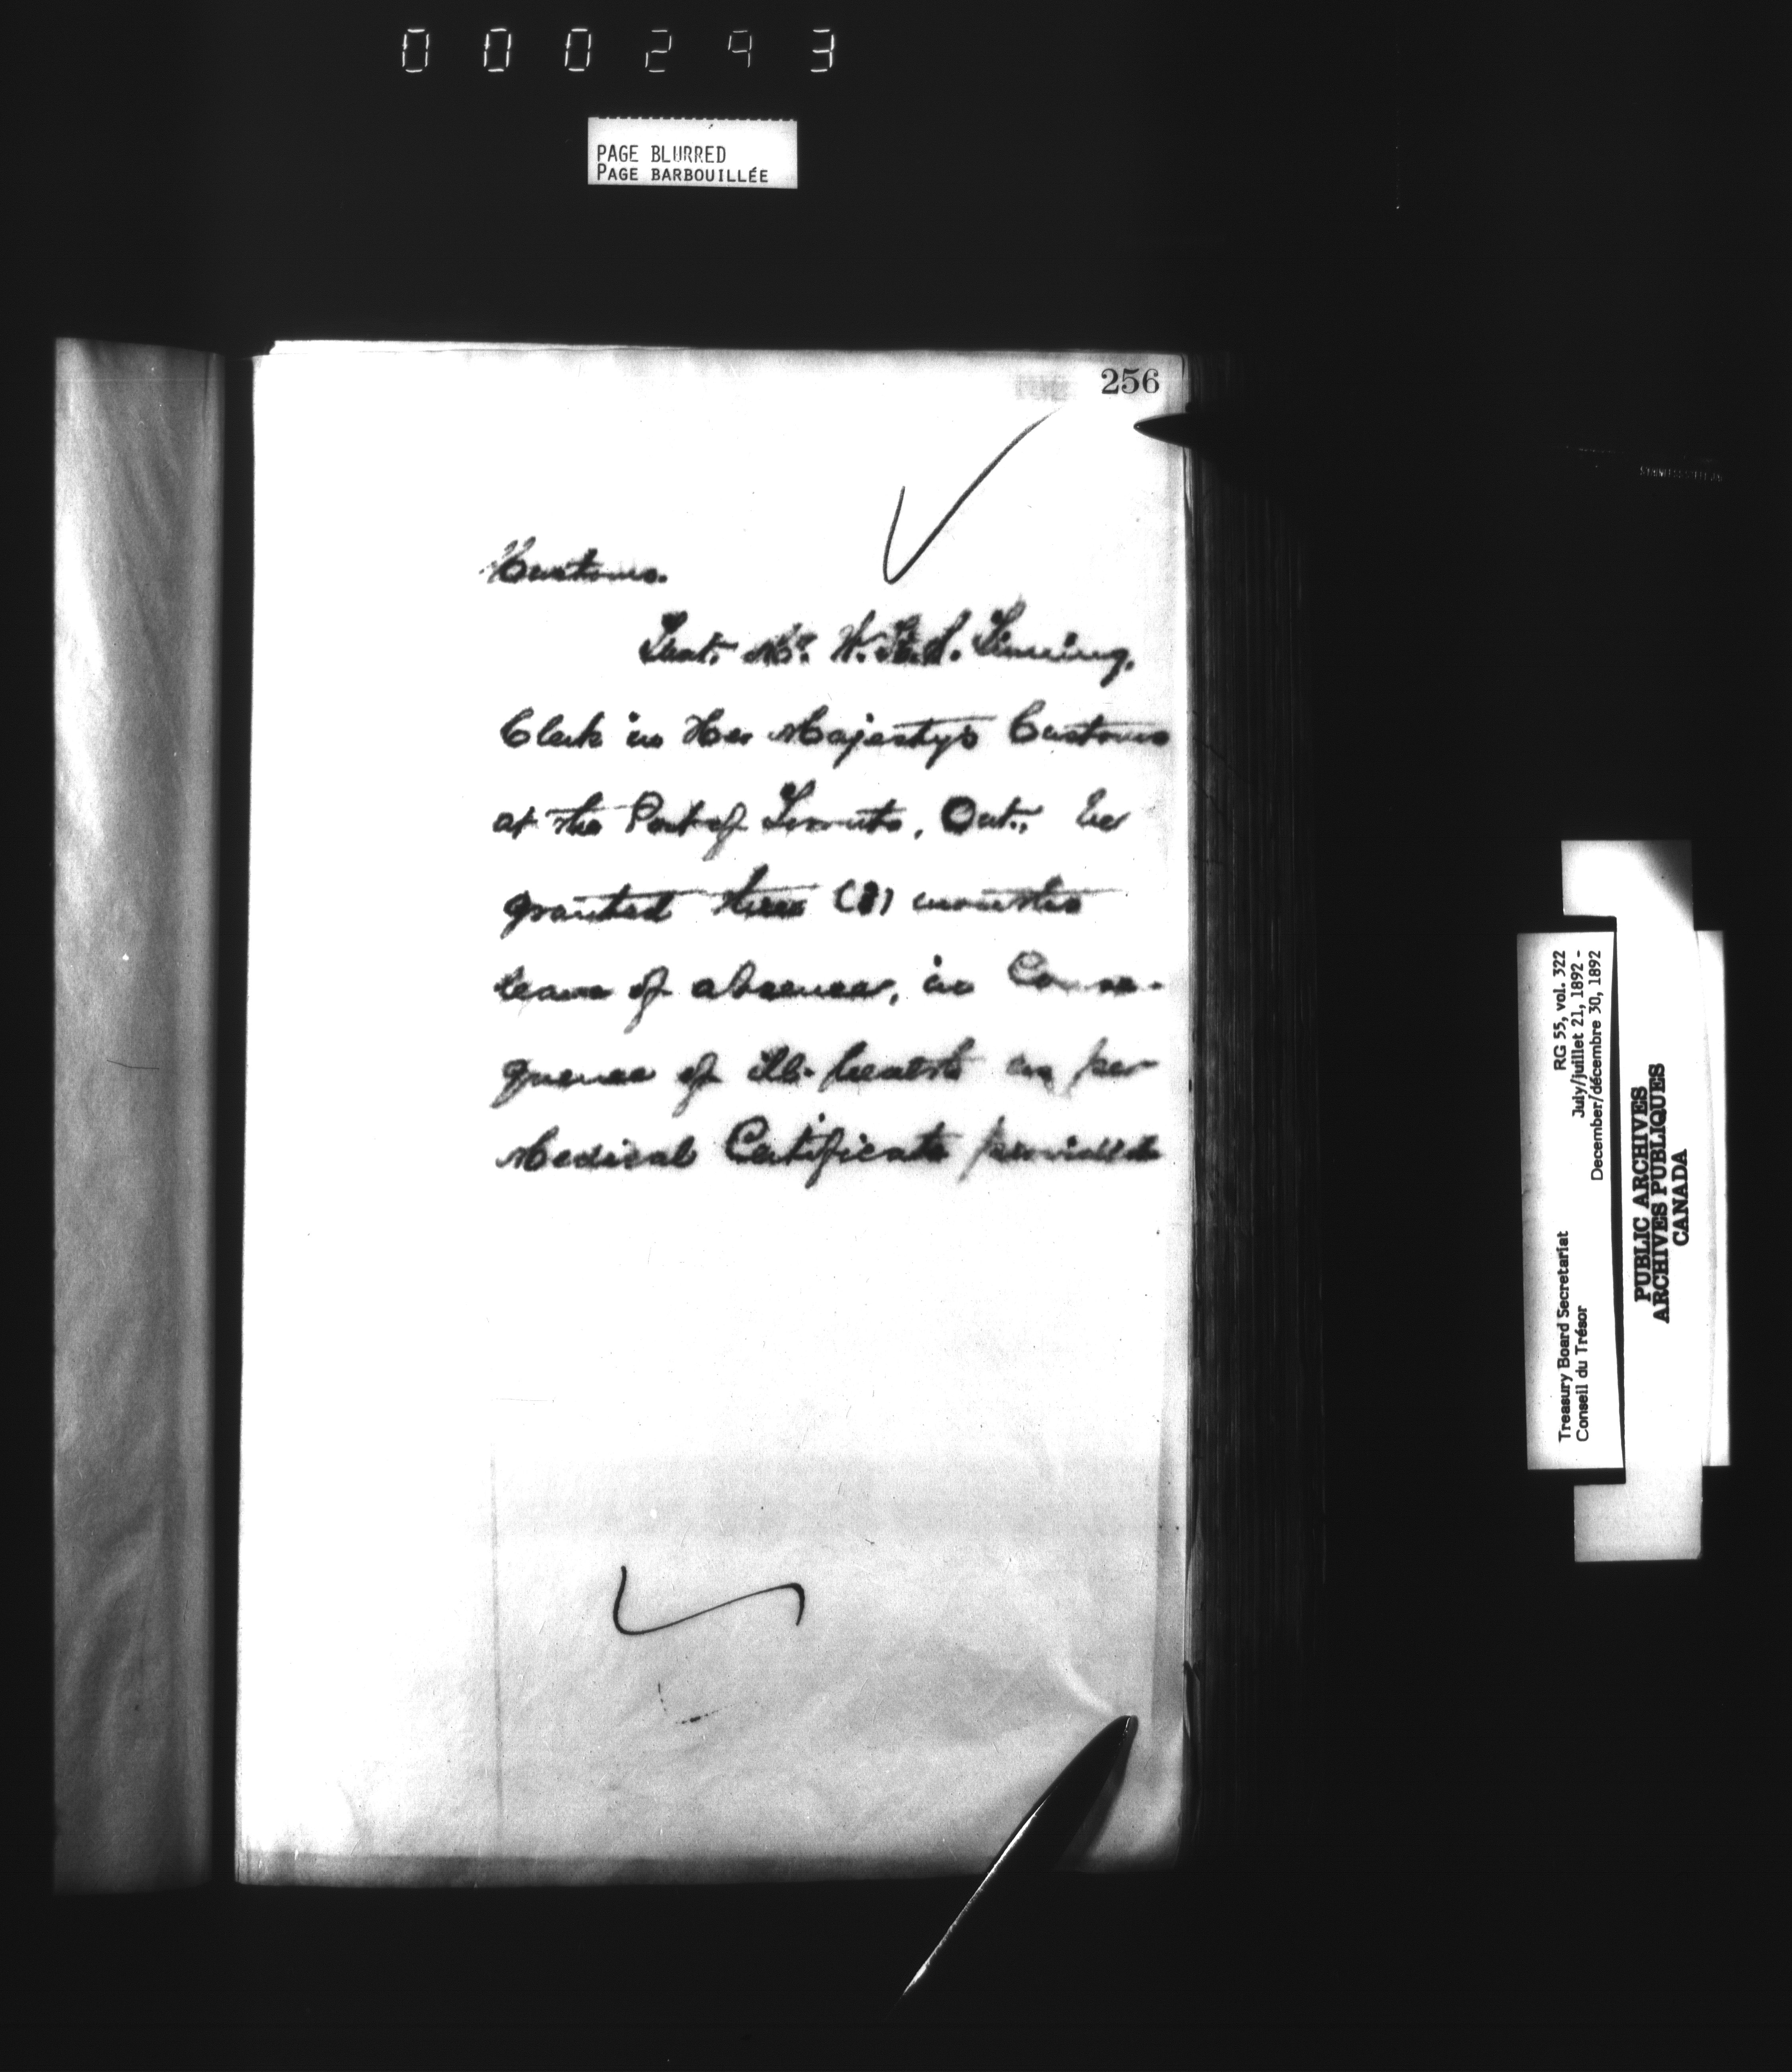 000293
PAGE BLURRED
PAGE BARBOUILLÉE
256
Customs.
That Mr. W.
Clerk in Her Majesty's Customs
at the Port of Toronto, Ont., be
granted three (3) months
leave of absence, in Conse-
quence of ill-health as per
Medical Certificate
RG 55, vol. 322
July/juillet 21, 1892 -
December/décembre 30, 1892
Treasury Board Secretariat
Conseil du Trésor
PUBLIC ARCHIVES
ARCHIVES PUBLIQUES
CANADA